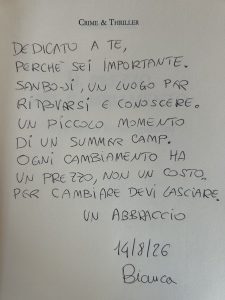 CRIME & THRILLER
DEDICATO A TE,
PERCHÈ SEI IMPORTANTE.
SANBOSI, UN LUOGO PER
RITROVARSI E CONOSCERE.
UN PICCOLO MOMENTO
DI UN SUMMER CAMP.
OGNI CAMBIAMENTO HA
UN PREZZO, NON UN COSTO.
PER CAMBIARE DEVI LASCIARE.
UN ABBRACCIO
14/8/26
Bianca